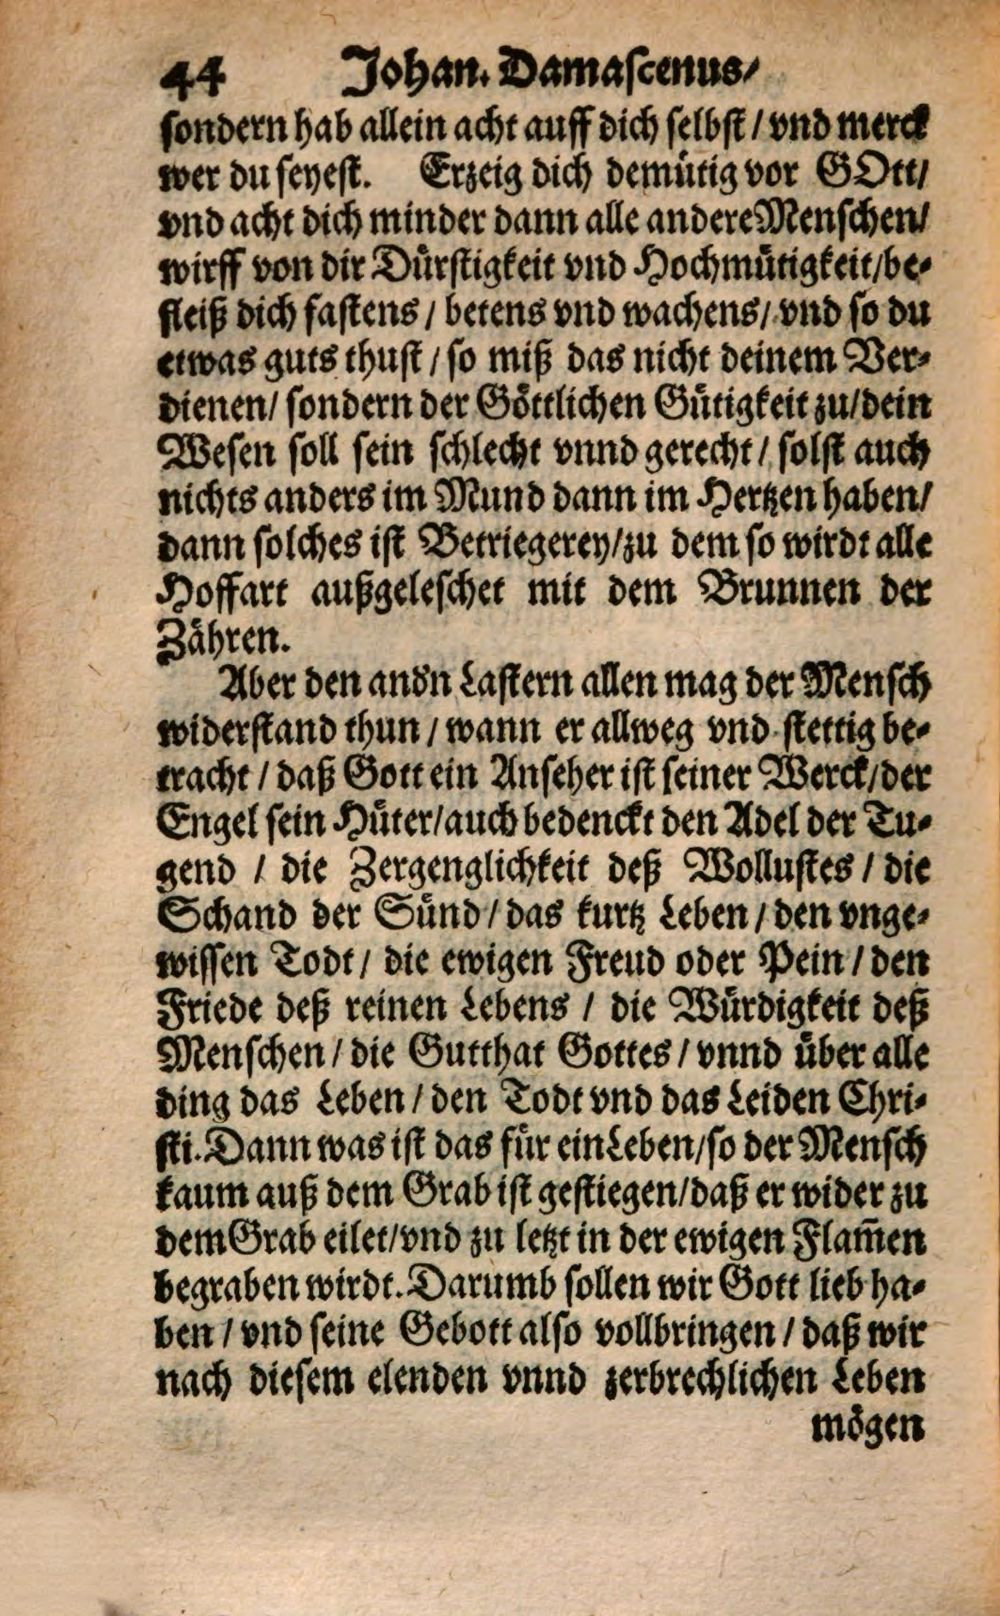 44 Johan. Damascenus/
sondern hab allein acht auff dich selbst / vnd merck
wer du seyest. Erzeig dich demütig vor GOtt/
vnd acht dich minder dann alle andere Menschen/
wirff von dir Dürstigkeit vnd Hochmütigkeit/be-
fleiß dich fastens / betens vnd wachens/ vnd so du
etwas guts thust / so miß das nicht deinem Ver-
dienen/ sondern der Göttlichen Gütigkeit zu/dein
Wesen soll sein schlecht vnnd gerecht / solst auch
nichts anders im Mund dann im Hertzen haben/
dann solches ist Betriegerey/zu dem so wirdt alle
Hoffart außgeleschet mit dem Brunnen der
Zähren.
Aber den andn Lastern allen mag der Mensch
widerstand thun / wann er allweg vnd stettig be-
tracht / daß Gott ein Anseher ist seiner Werck/der
Engel sein Hüter/auch bedenckt den Adel der Tu-
gend / die Zergenglichkeit deß Wollustes / die
Schand der Sünd / das kurtz Leben / den vnge-
wissen Todt / die ewigen Freud oder Pein / den
Friede deß reinen Lebens / die Würdigkeit deß
Menschen / die Gutthat Gottes / vnnd über alle
ding das Leben / den Todt vnd das Leiden Chri-
sti. Dann was ist das für ein Leben/so der Mensch
kaum auß dem Grab ist gestiegen/daß er wider zu
dem Grab eilet/vnd zu letzt in der ewigen Flam̄en
begraben wirdt. Darumb sollen wir Gott lieb ha-
ben / vnd seine Gebott also vollbringen / daß wir
nach diesem elenden vnnd zerbrechlichen Leben
mögen